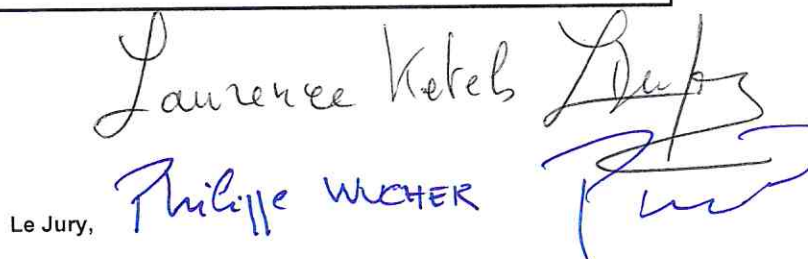 Laurence Ketels
Le Jury, Philippe WUCHER